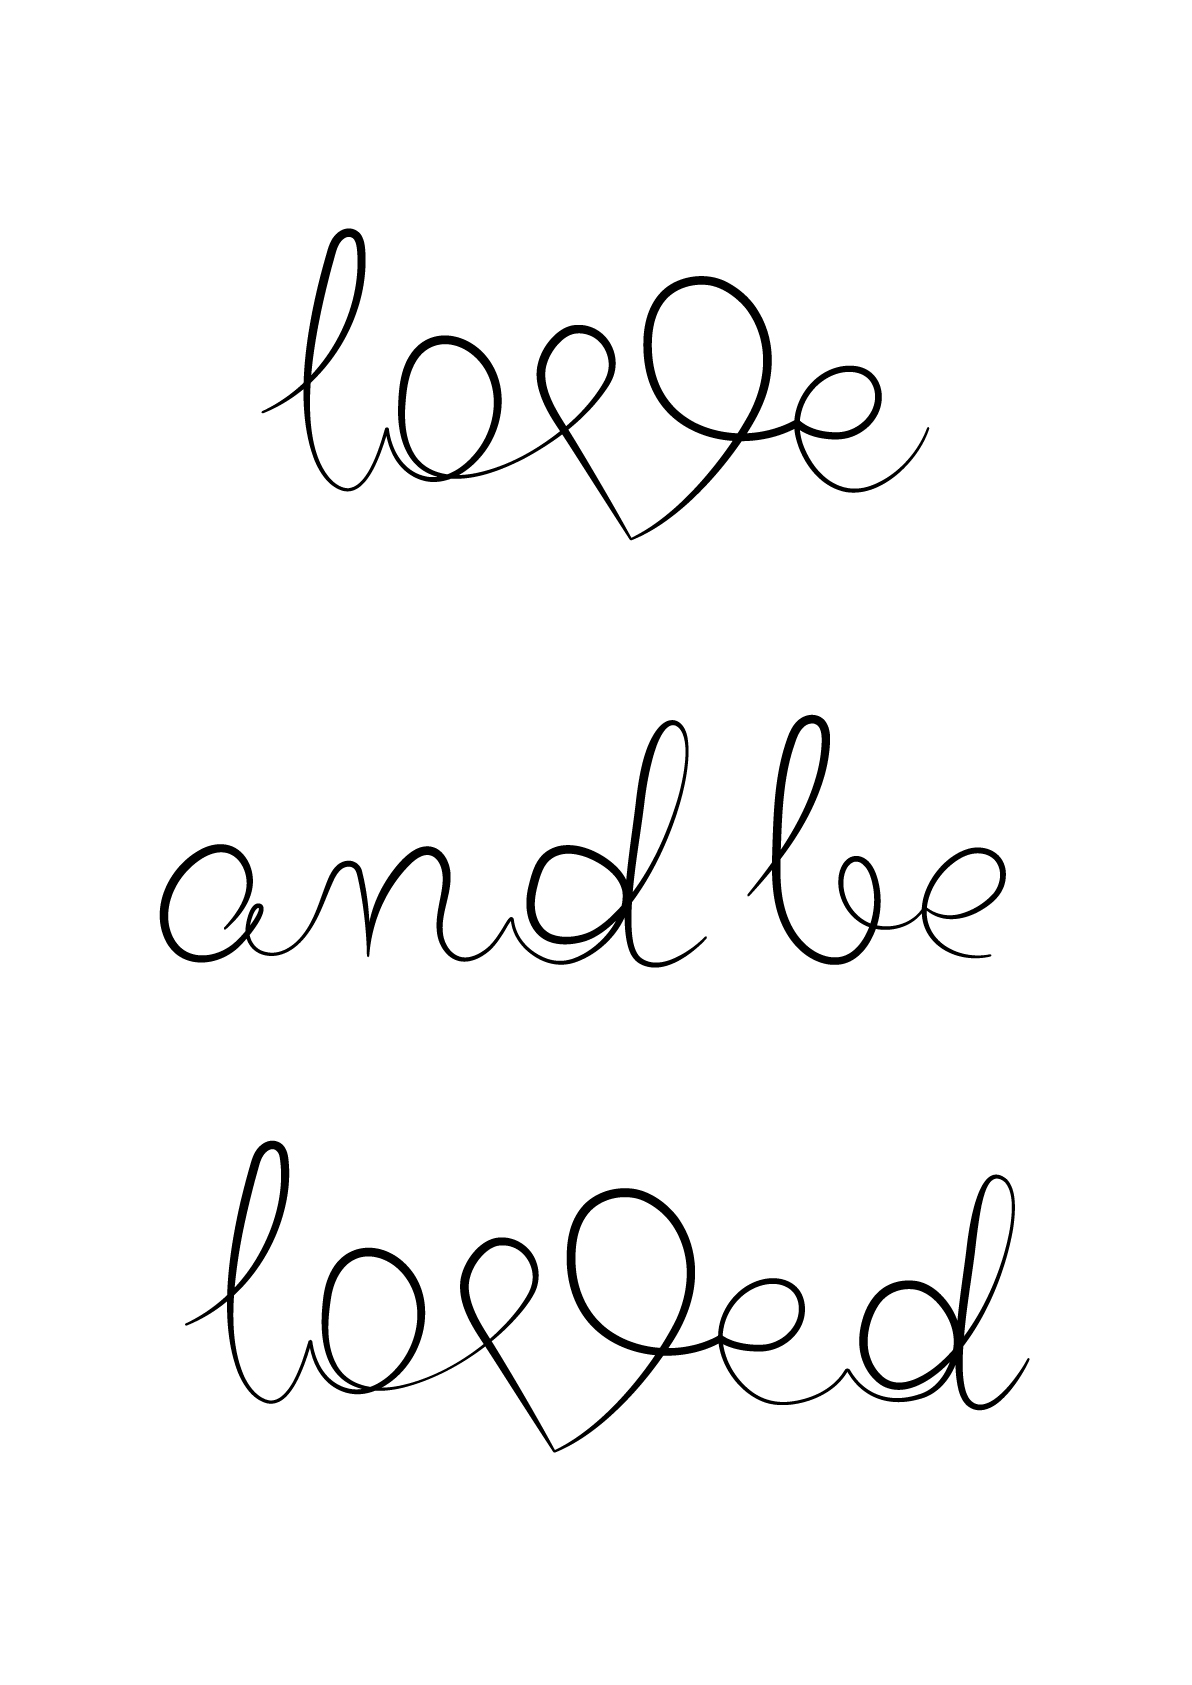 love
and be
loved